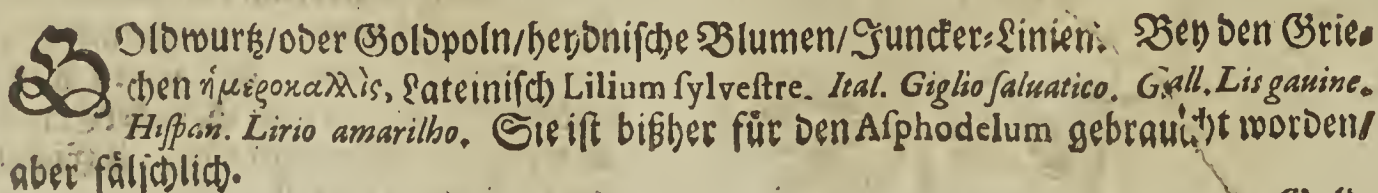 Goldwurtz/oder Goldpoln/heydnische Blumen/Juncker-Linien. Bey den Grie-
chen ἡμεροκαλλὶς, Lateinisch Lilium sylvestre. Ital. Giglio saluatico. Gall. Lis gauine.
Hispan. Lirio amarilho. Sie ist bißher für den Asphodelum gebraucht worden/
aber fälschlich.